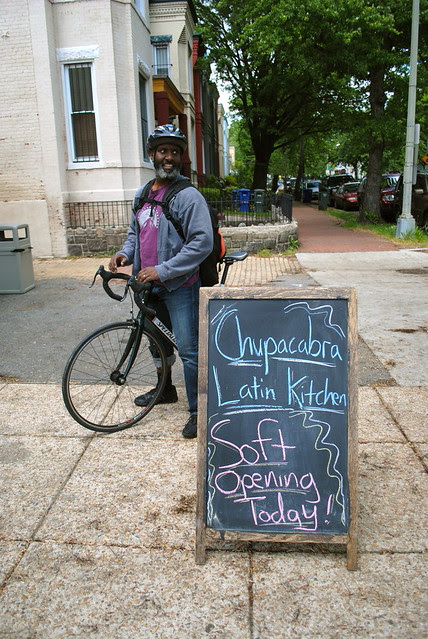 Chupacabra
Latin Kitchen
Soft
Opening
Today!